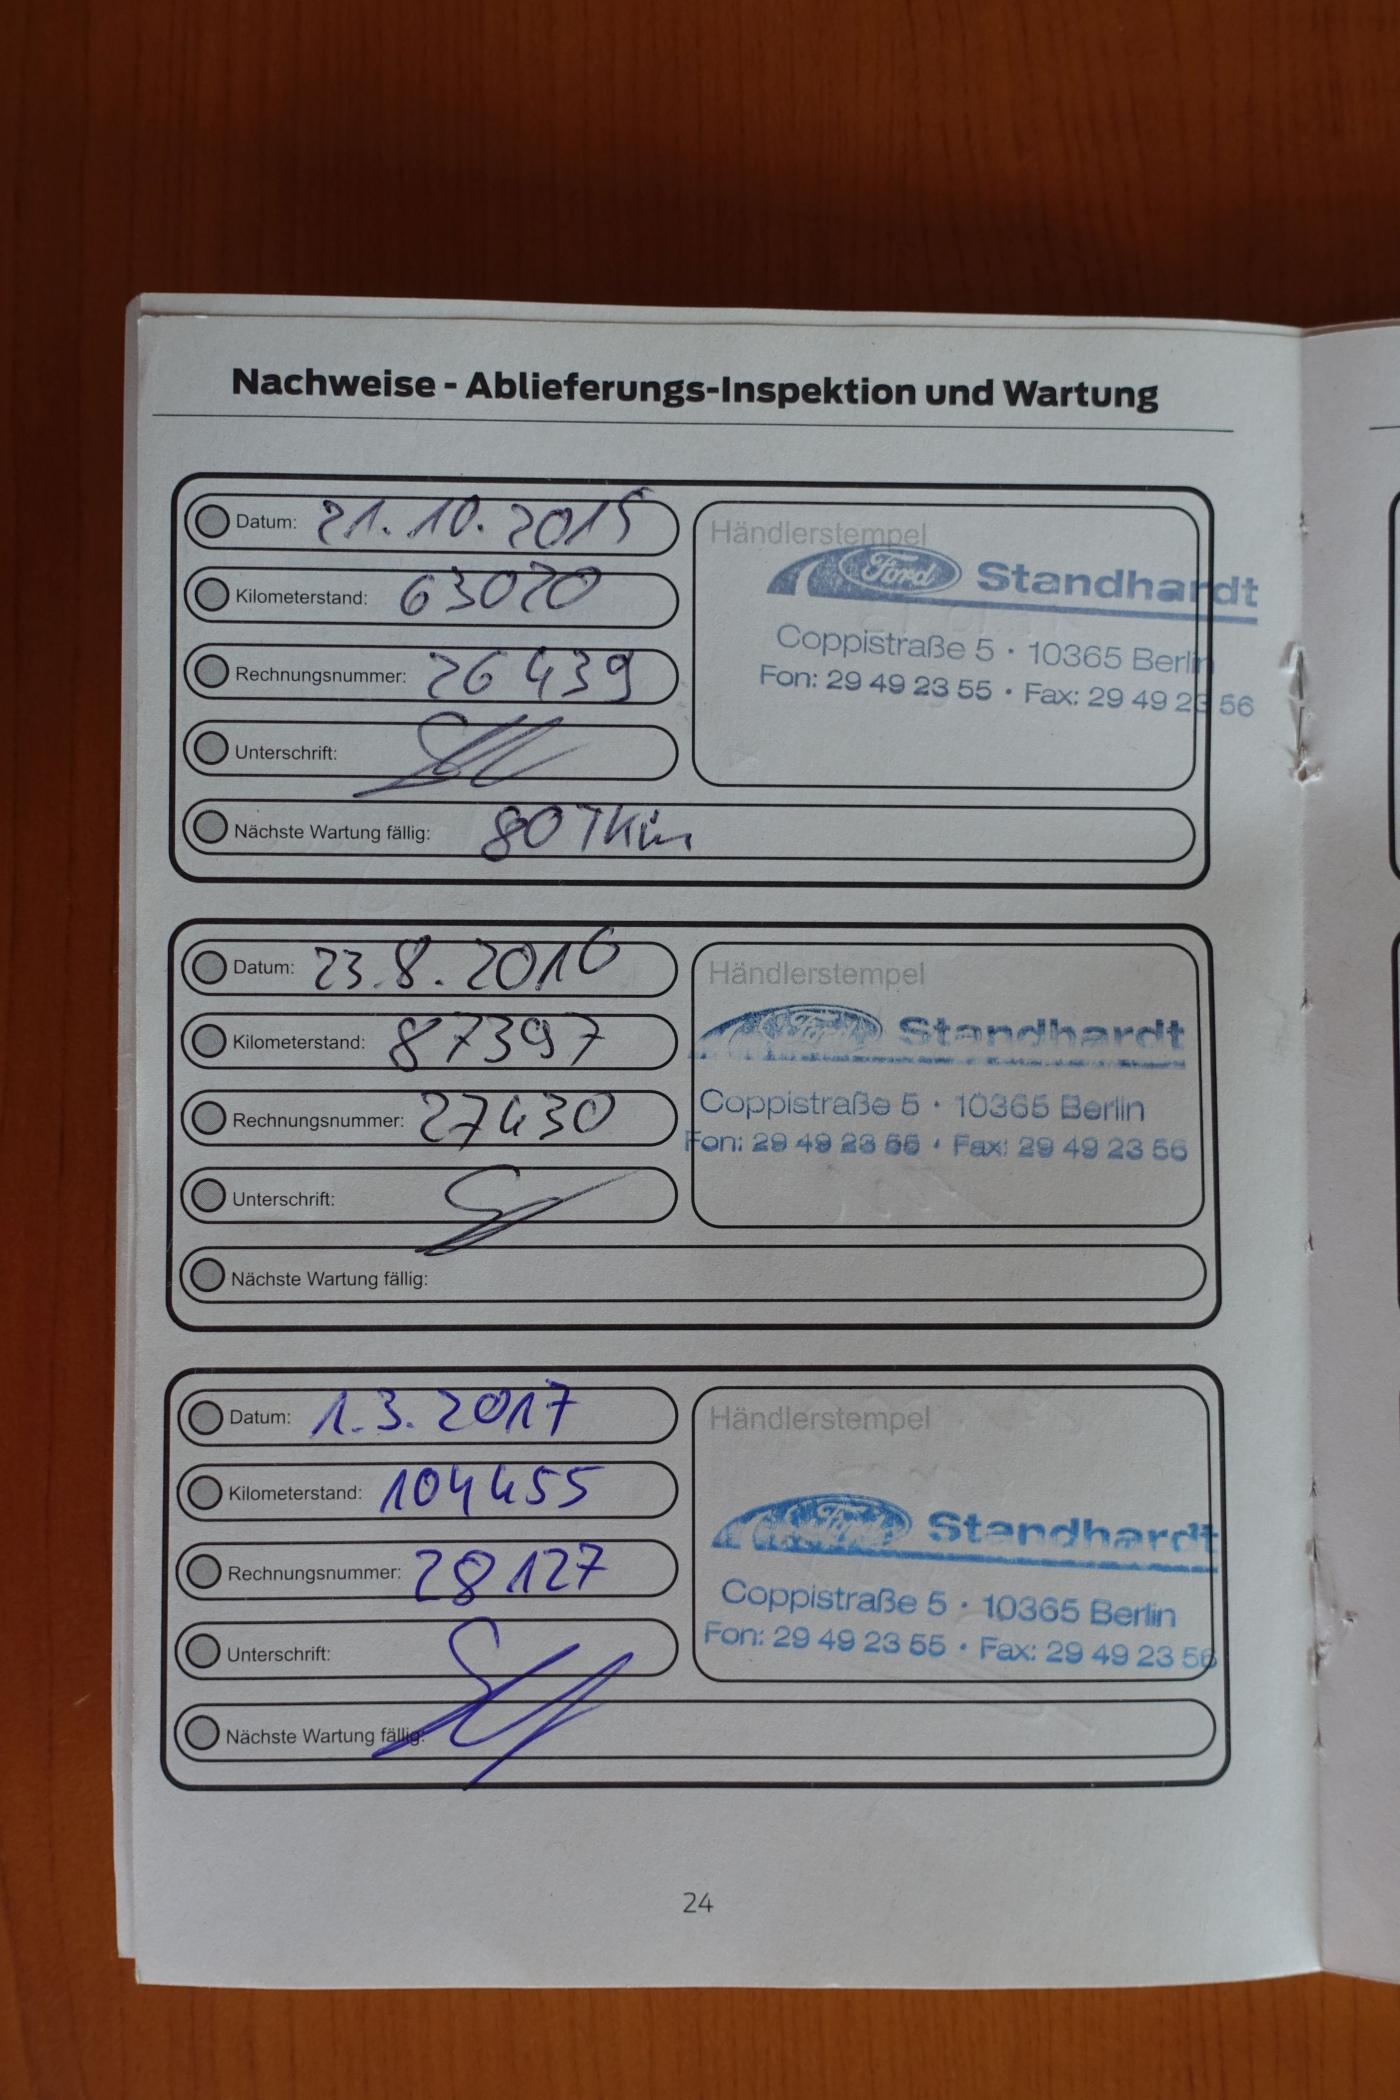 Nachweise - Ablieferungs-Inspektion und Wartung
Datum: 21.10.2015
Kilometerstand: 63070
Rechnungsnummer: 26439
Unterschrift:
Nächste Wartung fällig: 80 Tkm
Händlerstempel
Ford Standhardt
Coppistraße 5 · 10365 Berlin
Fon: 29 49 23 55 · Fax: 29 49 23 56
Datum: 23.8.2016
Kilometerstand: 87397
Rechnungsnummer: 27430
Unterschrift:
Nächste Wartung fällig:
Händlerstempel
Ford Standhardt
Coppistraße 5 · 10365 Berlin
Fon: 29 49 23 55 · Fax: 29 49 23 56
Datum: 1.3.2017
Kilometerstand: 104455
Rechnungsnummer: 28127
Unterschrift:
Nächste Wartung fällig:
Händlerstempel
Ford Standhardt
Coppistraße 5 · 10365 Berlin
Fon: 29 49 23 55 · Fax: 29 49 23 56
24